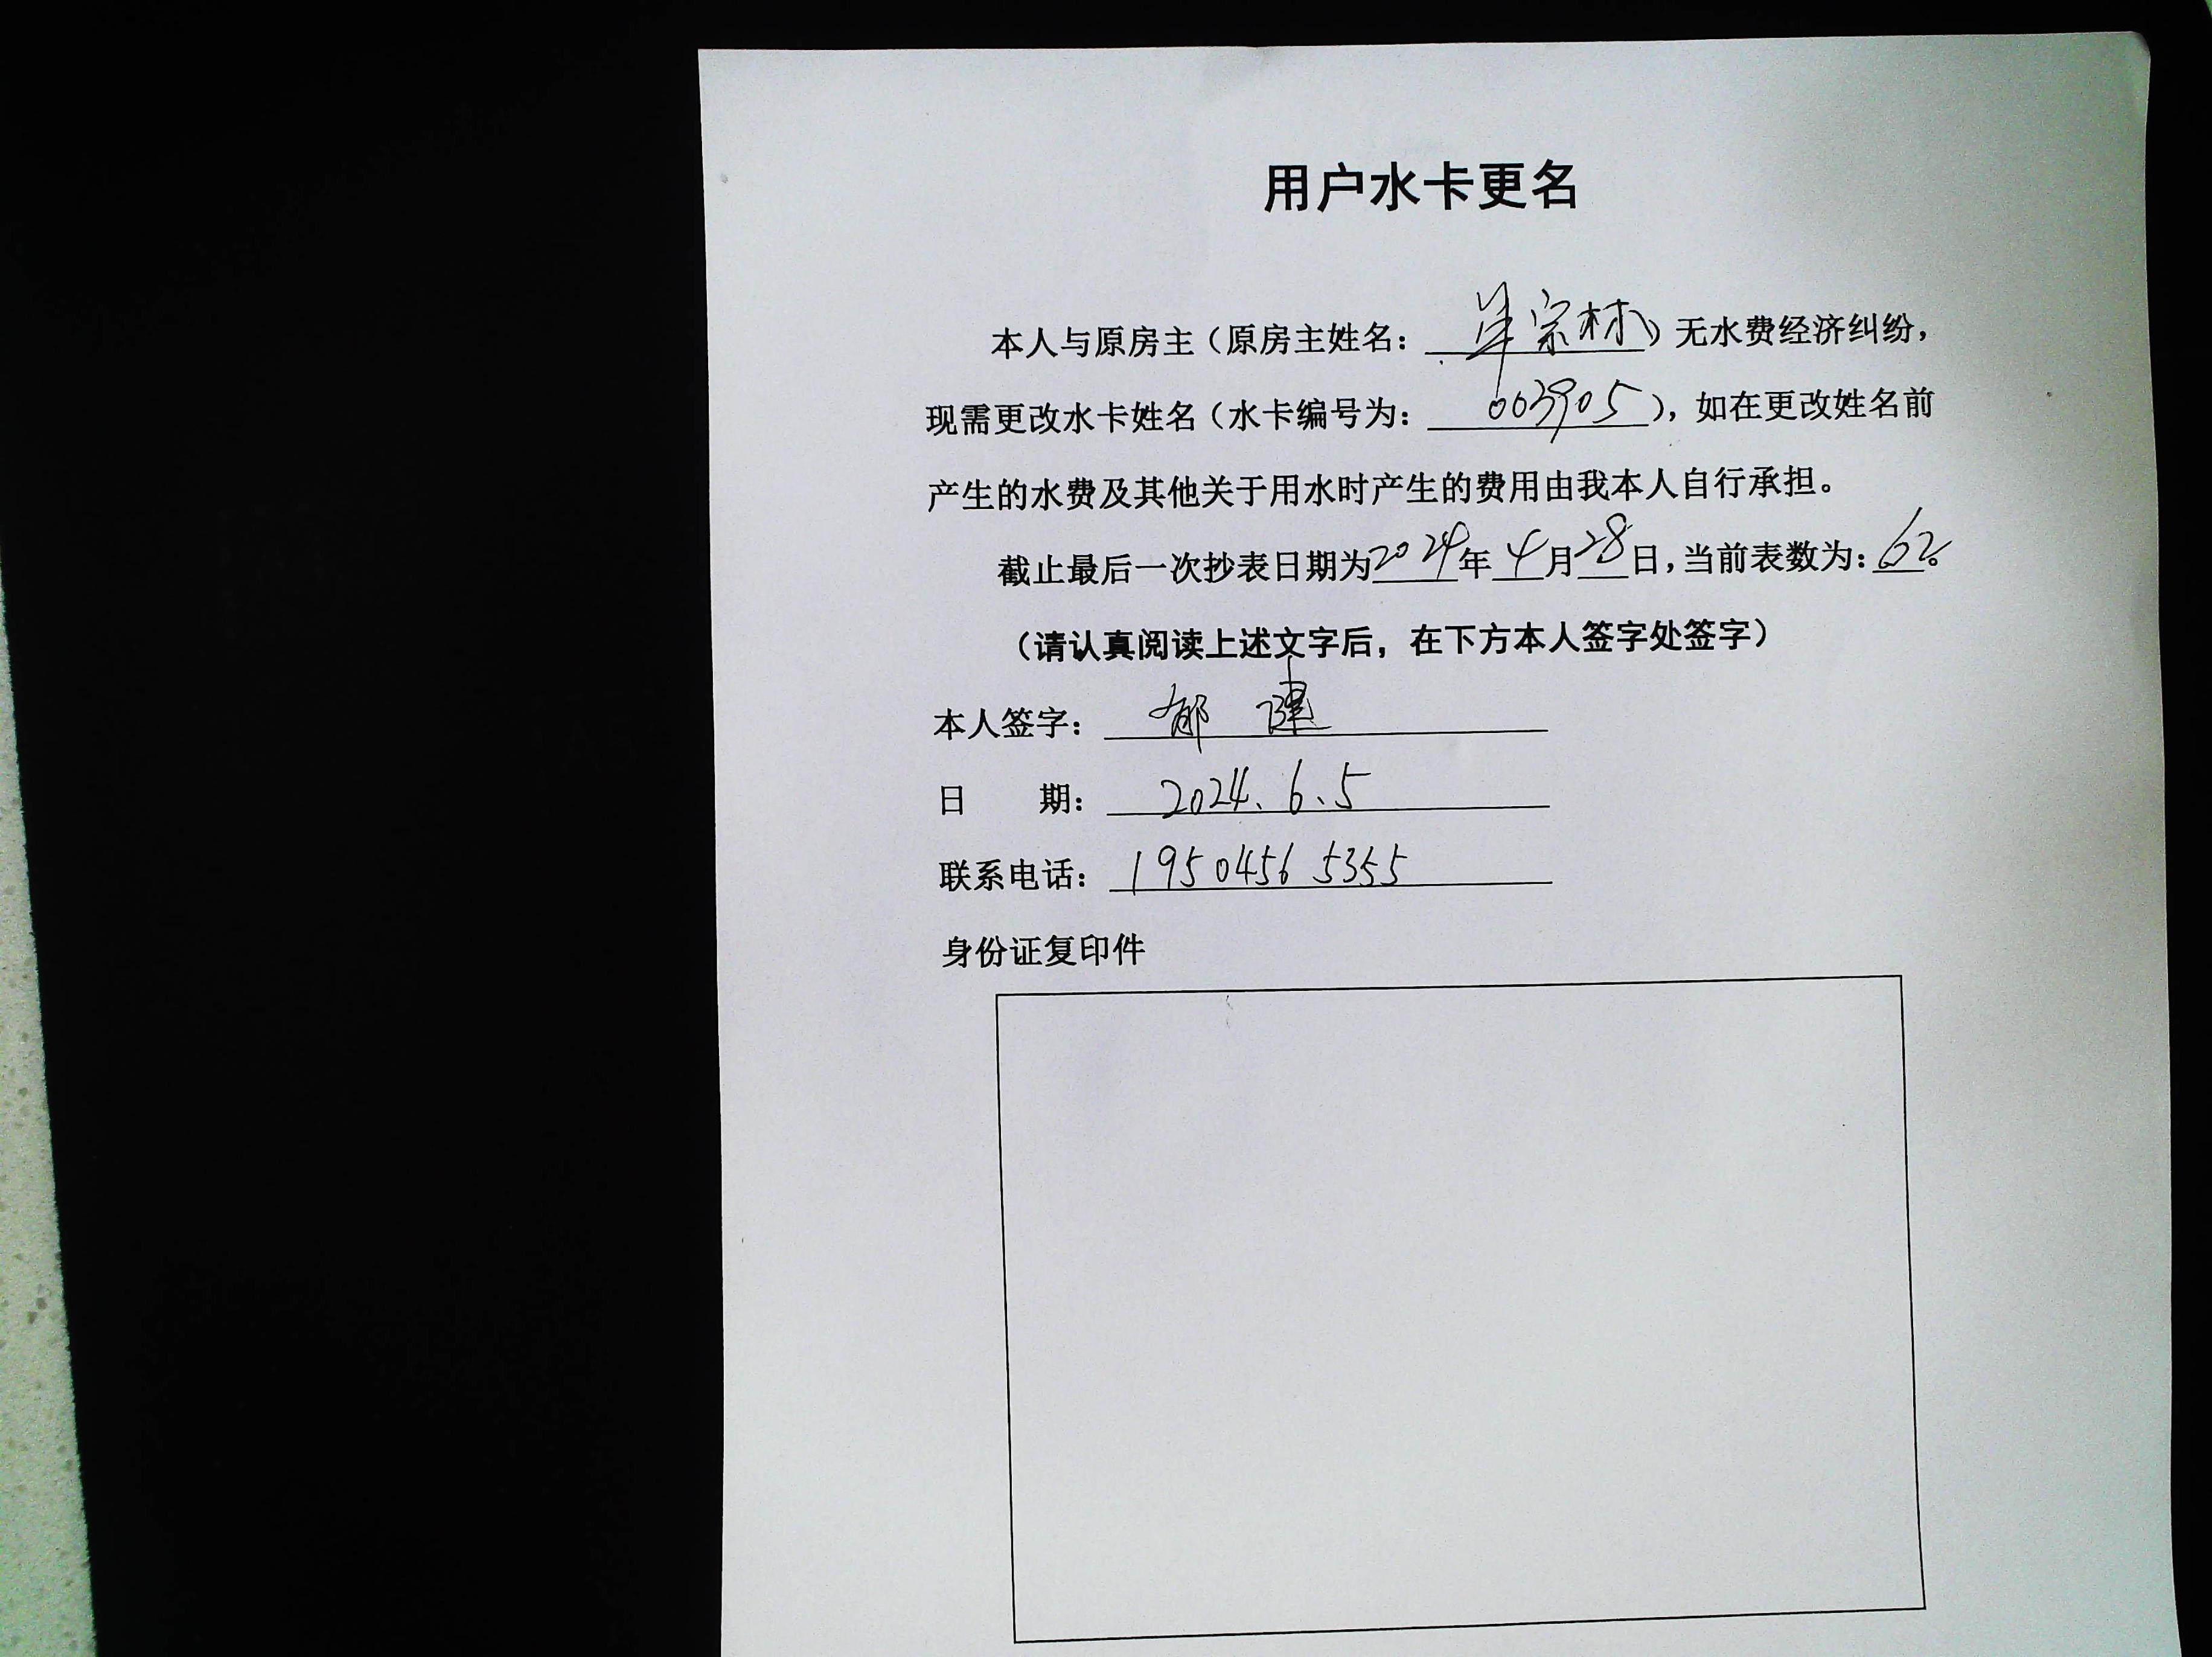 用户水卡更名
本人与原房主（原房主姓名：单宗林）无水费经济纠纷，
现需更改水卡姓名（水卡编号为：003905），如在更改姓名前
产生的水费及其他关于用水时产生的费用由我本人自行承担。
截止最后一次抄表日期为2024年4月28日，当前表数为：62。
（请认真阅读上述文字后，在下方本人签字处签字）
本人签字：郁建
日期：2024、6、5
联系电话：19504565355
身份证复印件